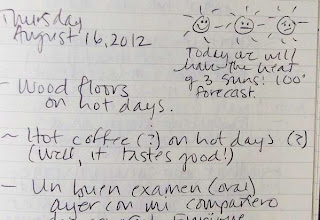 Thursday
August 16, 2012
Today we will
have the heat
of 3 suns! 100°
forecast.
- Wood floors
on hot days.
~ Hot coffee (?) on hot days (?)
(Well, it tastes good!)
- Un buen examen (oral)
ayer con mi compañero